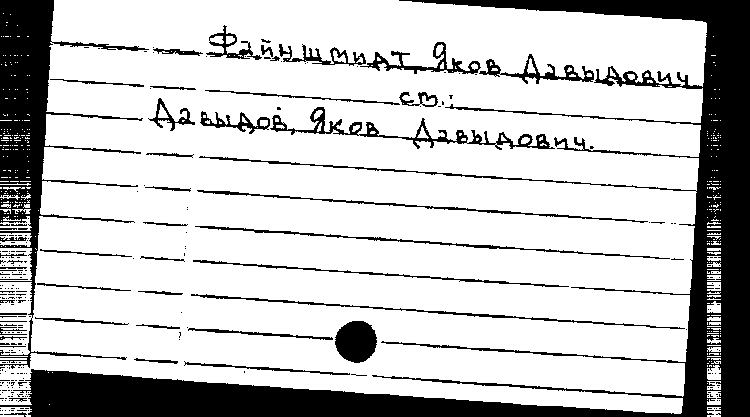 Файншмидт, Яков Давыдович
см.:
Давыдов, Яков Давыдович.